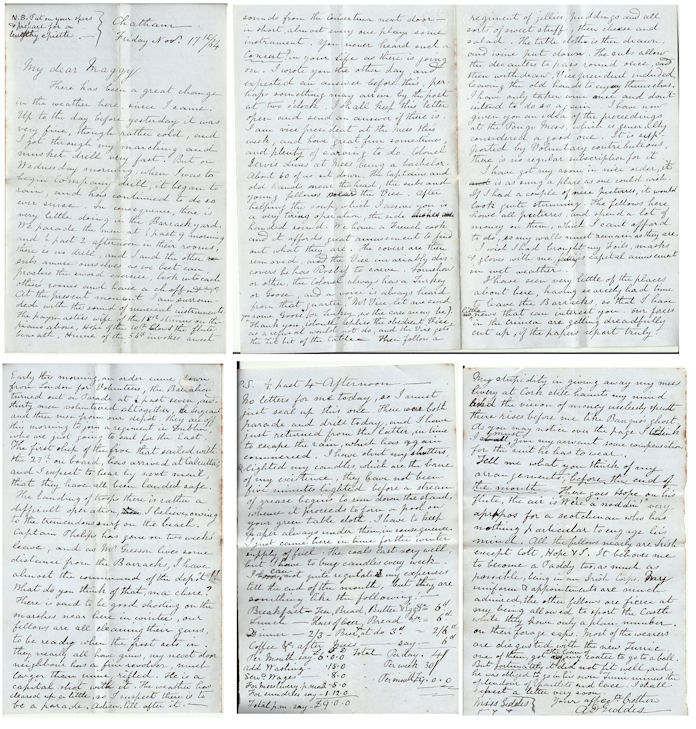 N.B. Put on your specs
& prepare for a
lengthy epistle. —
Chatham
Friday Nov. 17
My dear Maggy
There has been a great change
in the weather here since I came.
Up to the day before yesterday it was
very fine, though rather cold, and
I got through my marching and
musket drill very fast. But on
Wednesday morning when I was to
begin Company drill, it began to
rain, and has continued to do so
ever since. In consequence, there is
very little doing in the Barrack yard,
We parade the men at ½ past 9 morning
and ½ past 2 afternoon in their rooms,
there is no drill, and I and the other
subs amuse ourselves as we best can
practise the sword exercise, look into each
others rooms and have a chaff
At the present moment I am surroun-
ded with the sound of musical instruments
The paym asters wife of the is on the
piano above, Hope of the the flute
beneath, of the invokes sweet
sounds from the Concertina next door —
in short, almost every one plays some
instrument. You never heard such a
Concert in your life as there is going
on. I wrote you the other day, and
expected an answer before this, per-
haps something may arrive by the post
at two o'clock. I shall keep this letter
open and send an answer if there is.
I am vice president at the Mess this
week, and have great fun sometimes
and plenty of carving to do. Colonel
Jervis dines at Mess being a bachelor.
About 60 of us sit down, the Captains and
old hands near the head, the subs and
young fellows near the Vice. After
helping the soup which I assure you is
a very tiring operation, the side dishes are
handed round. We have a French cook
and it affords great amusement to find
out what they are. The covers are then
removed and the Vice invariably dis-
covers he has Roast to carve. Somehow
or other, the Colonel always has a Turkey
or Goose and a voice is always heard
from that quarter "Mr Vice let me send
you some Goose (or Turkey, as the case may be)".
Thank you Colonel, replies the obedient Vice
as a refusal would not do, and the Vice gets
the tit bit of the table. Then follow a
regiment of jellies puddings and all
sorts of sweet stuff, then cheese and
salad. The table cloth is then drawn
and wine put down. The subs allow
the decanters to pass round once, and
then withdraw, Vice president included,
leaving the old hands to enjoy themselves.
I have only taken wine once, and don't
intend to do so again. I have now
given you an idea of the proceedings
at the Mess, which is generally
considered a good one. It is sup-
ported by Voluntary contributions,
there is no regular subscription for it
I have got my room in nice order, it
is as snug a place as one could wish.
If I had a couple of nice pictures, it would
look quite stunning. The fellows here
have all pictures, and spend a lot of
money on them, which I cant afford
to do, so my walls must remain as they are.
I wish I had brought my foils, masks
& gloves with me, capital amusement
in wet weather.
I have seen very little of the places
about here, having scarcely had time
to leave the Barracks, so that I have
no news that can interest you. Our forces
in the Crimea are getting dreadfully
cut up, if the papers report truly
Early this morning an order came down
from London for Volunteers, the Battalion
turned out on Parade at ½ past seven, and
thirty men volunteered altogether, a sergeant
and three men from our depot. They are off
this morning to join a regiment in Dublin
who are just going to sail for the East
The first ship of the five that sailed with
the 27th on board, has arrived at Calcutta
and I expect to hear by next mail
that they have all been landed safe.
The landing of troops there is rather a
difficult operation I believe, owing
to the tremendous surf on the beach.
Captain Phelps has gone on two weeks
leave, and as Mr lives some
distance from the Barracks, I have
almost the command of the depot!!
What do you think of that, ma chere?
There is said to be good shooting on the
marshes near here in winter, our
fellows are all cleaning their guns,
to be ready when the frost sets in,
they nearly all have guns, my next door
neighbour has a fine revolver, much
larger than mine, rifled. He is a
capital shot with it. The weather has
cleared up a little, so I suspect there is to
be a parade. Adieu till after it.
P.S. ½ past 4 Afternoon —
No letters for me today, so I must
just seal up this one. There was both
parade and drill today, and I have
just returned from the latter in time
to escape the rain which has again
commenced. I have shut my shutters,
& lighted my candles which are the bane
of my existence, they have not been
five minutes lighted before a stream
of grease begins to run down the stand,
whence it proceeds to form a pool on
your green table cloth. I have to keep
a paper always under them in consequence.
I just came here in time for the winter
supply of fuel. The coals last very well
but I have to buy candles every week.
I can not quite regulate my expenses
till the end of the month, but they are
something like the following.
Breakfast – Tea, Bread, Butter & Eggs = 6d
Lunch — Glass of beer, Bread &c = 6d
Dinner — 2/3 – Beer, at do 3d — 2/6
Coffee &c after say — 6d
Total Per day. 4/
Per Month say – 6.0.0
Per week 30/
add Washing – .15.0
Servts Wages – .8.0
For mess livery, p. month – 5.0
Per Month £9.0.0
For sundries say – 1.12.0
Total p.m. say – £9.0.0
My stupidity in giving away my mess
livery at Cork still haunts my mind
and the vision of money uselessly spent
there rises before me, like Banquo's ghost.
As you may notice over the page I
to give my servant some compensation
for the suit he has to wear.
Tell me what you think of my
arrangements, before the end of
the month. — There goes Hope on his
flute, the air is "We're a noddin" very
apropos for a scotchman who has
nothing particular to engage his
mind. All the fellows nearly are Irish
except Colt, Hope & I. It behoves me
to become a Paddy too, as much as
possible, being in an Irish Corps. My
uniform & appointments are much
admired, the other fellows are fierce at
my being allowed to sport the Castle
while they have only a plain number
on their forage caps. Most of the wearers
are disgusted with the new Tunic
one of them to go to a ball.
But fortunately it did not fit well, and
he was obliged to go in his own. Tunic minus the
splendour of Epaulettes and lace. I shall
expect a letter very soon
Your affect. brother
A. D. Geddes
Miss Geddes